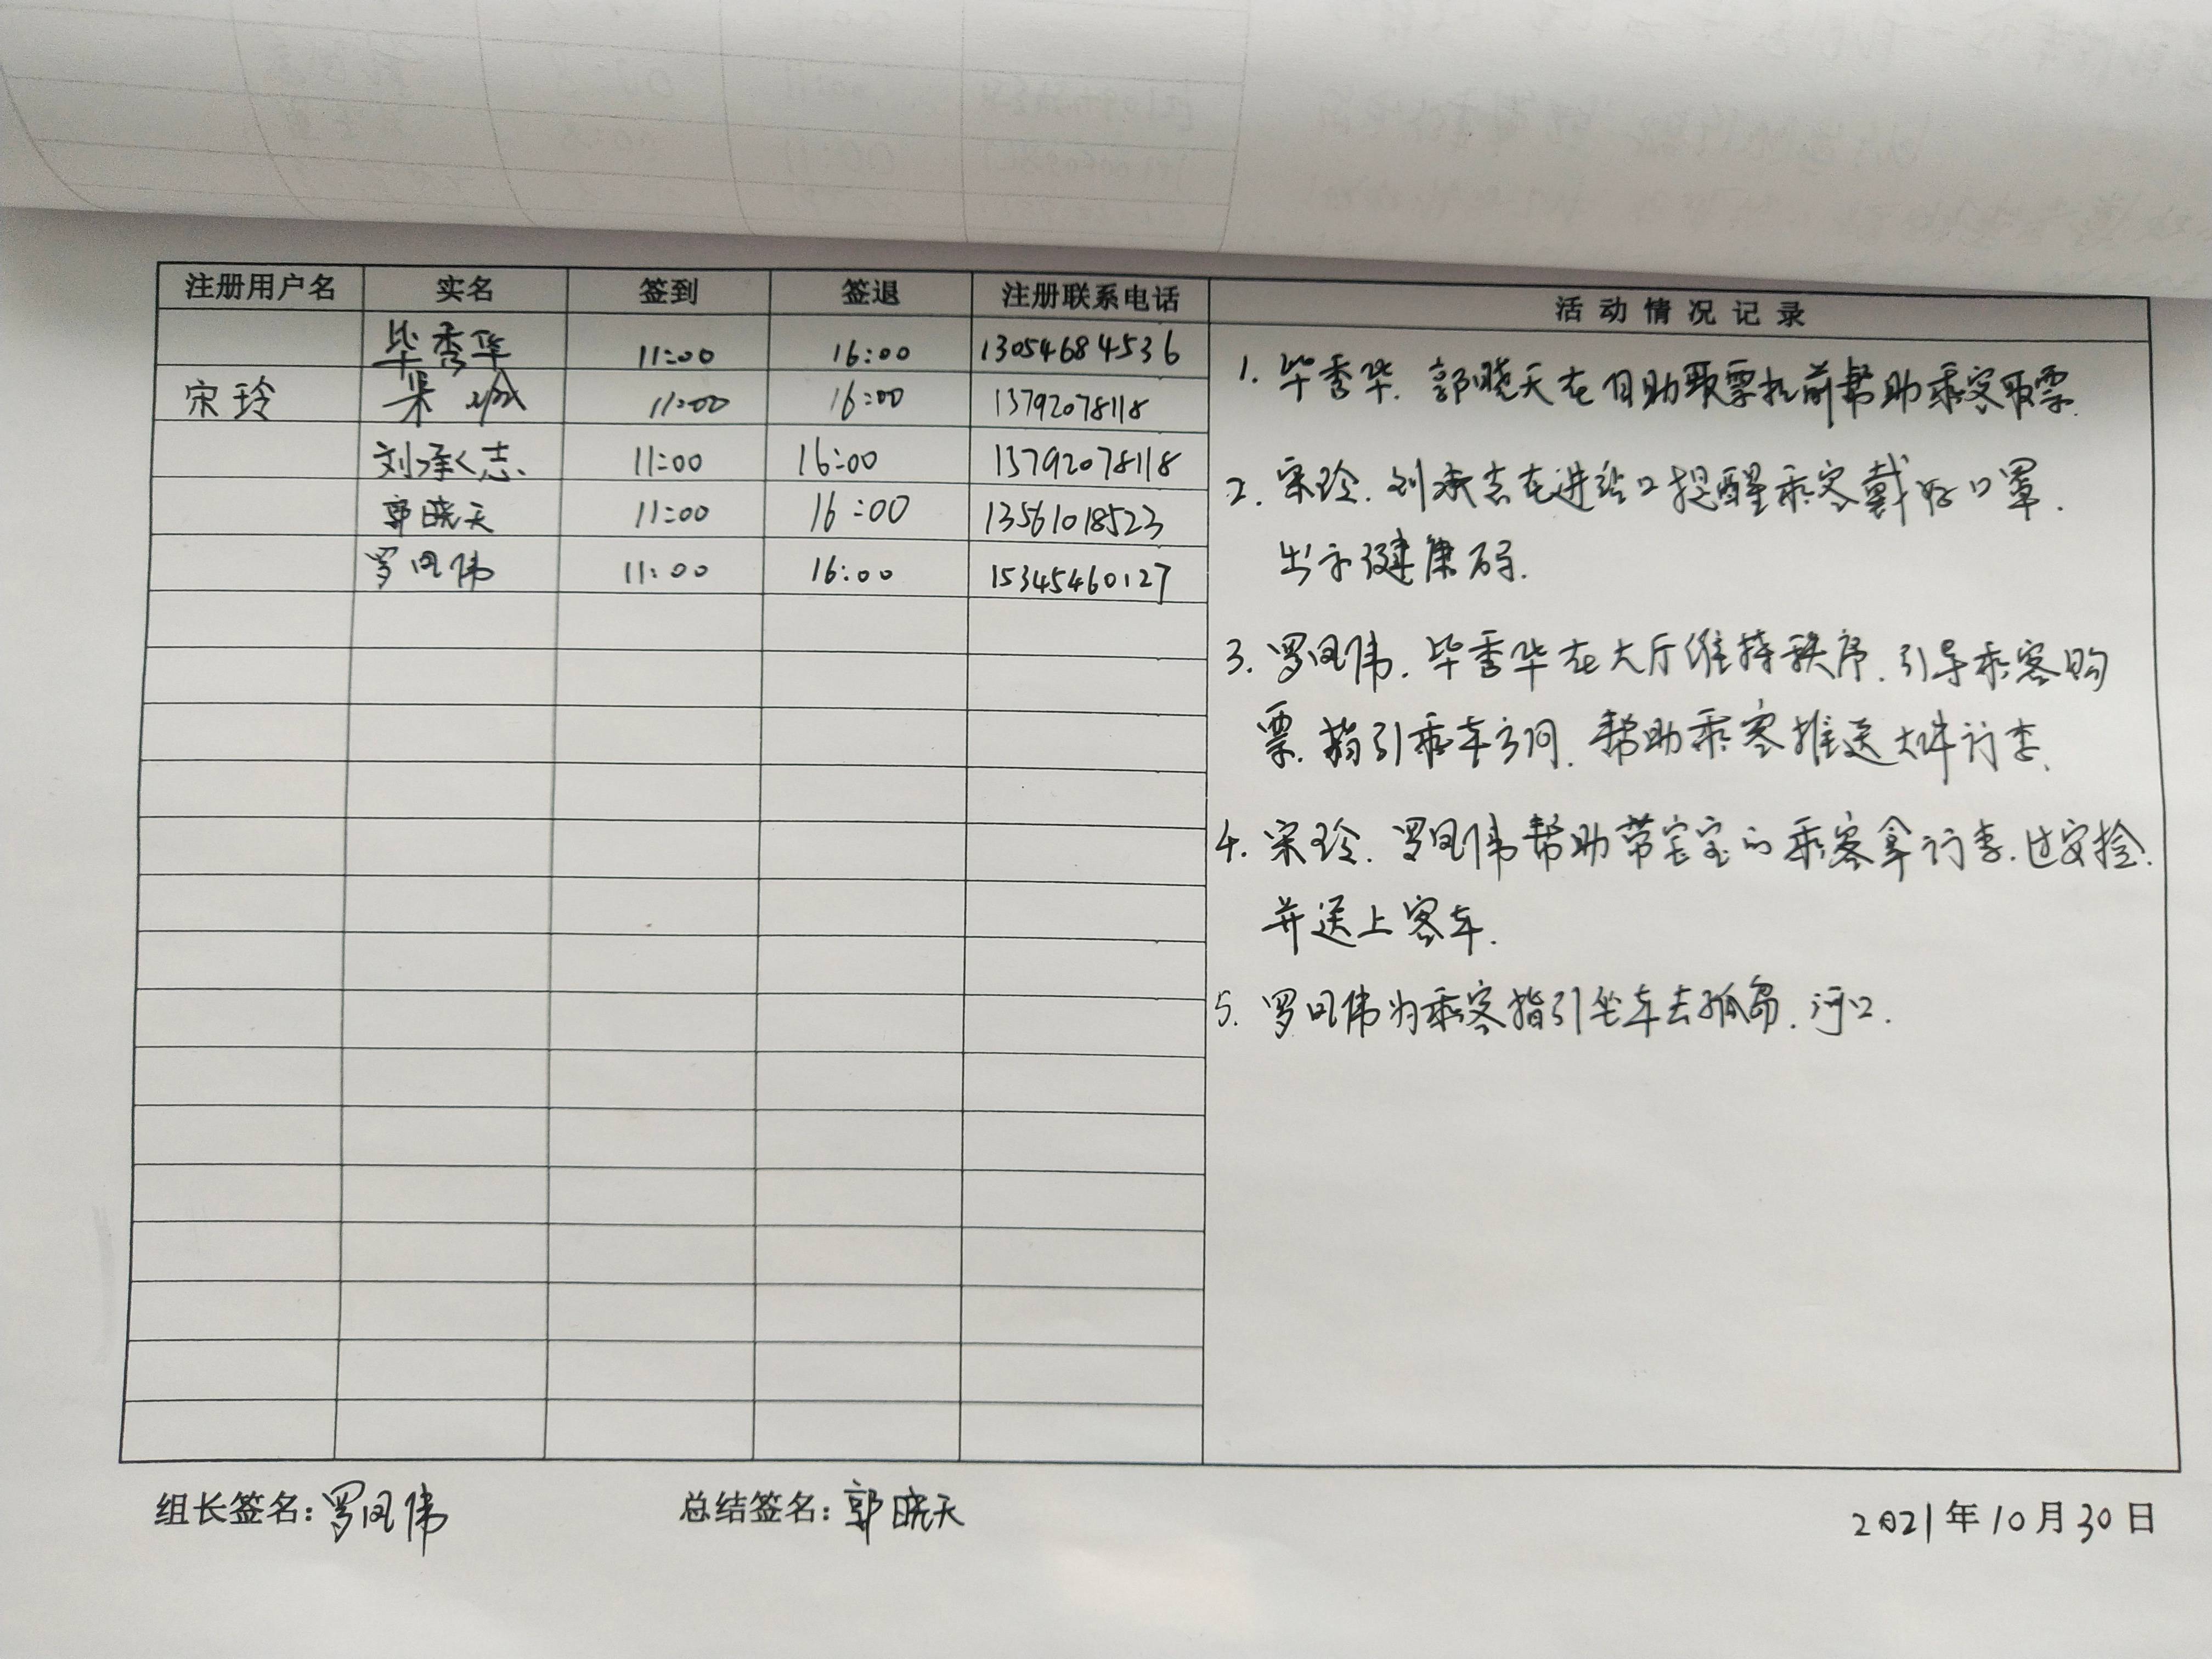 注册用户名 实名 签到 签退 注册联系电话 活动情况记录
毕秀华 11:00 16:00 13054684536
宋玲 宋玲 11:00 16:00 13792078118
刘承志 11:00 16:00 13792078118
郭晓天 11:00 16:00 13561018523
罗凤伟 11:00 16:00 15345460127
1. 毕秀华. 郭晓天在自助取票机前帮助乘客取票.
2. 宋玲. 刘承志在进站口提醒乘客戴好口罩.
出示健康码.
3. 罗凤伟. 毕秀华在大厅维持秩序. 引导乘客购
票. 指引乘车方向. 帮助乘客推送大件行李.
4. 宋玲. 罗凤伟帮助带宝宝的乘客拿行李. 过安检.
并送上客车.
5. 罗凤伟为乘客指引坐车去孤岛. 河口.
组长签名: 罗凤伟 总结签名: 郭晓天 2021年10月30日